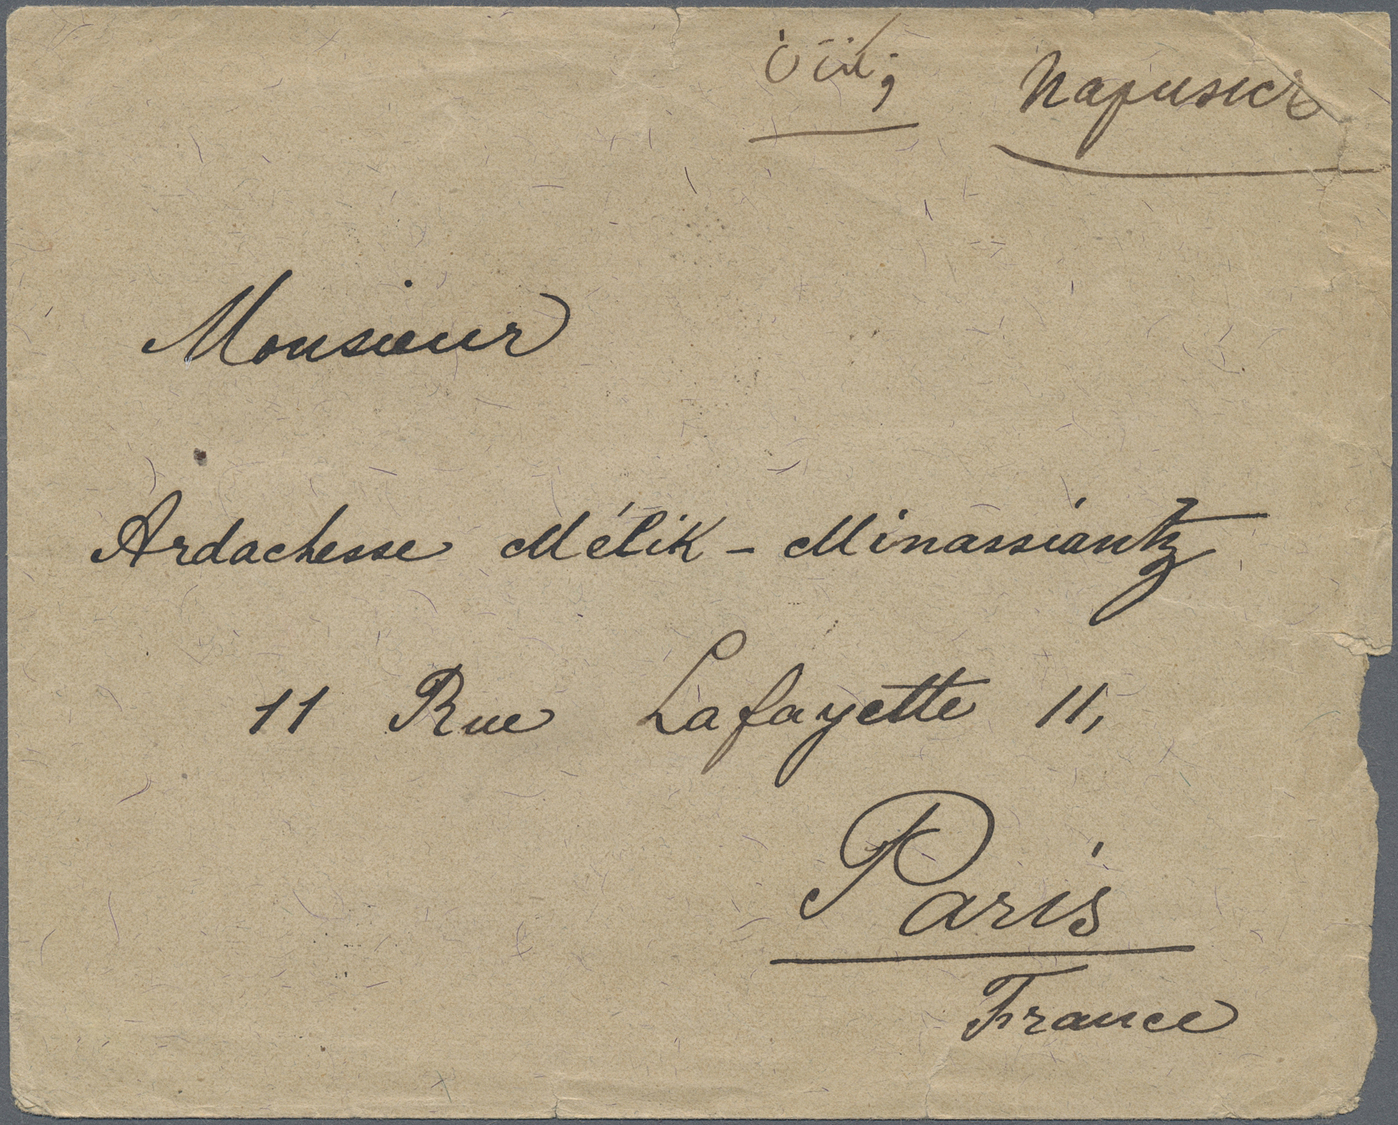 Monsieur
Ardachesse Mélik - Minassiantz
11 Rue Lafayette 11,
Paris
France